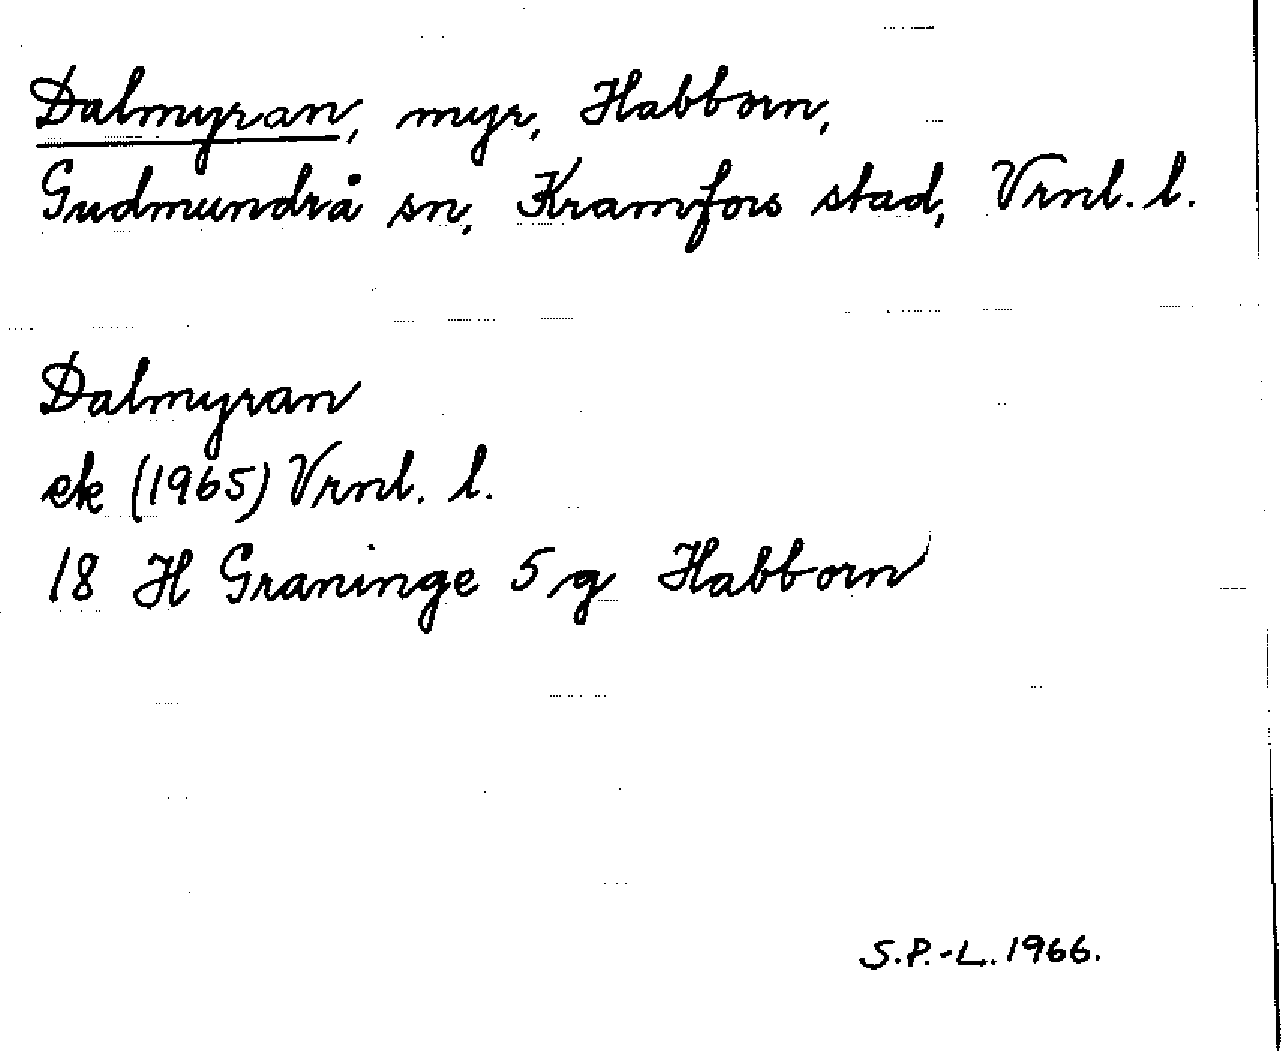 Dalmyran, myr, Habborn,
Gudmundrå sn, Kramfors stad, Vrnl. l.
Dalmyran
ek (1965) Vrnl. l.
18 H Graninge 5 g Habborn
S.P.-L. 1966.